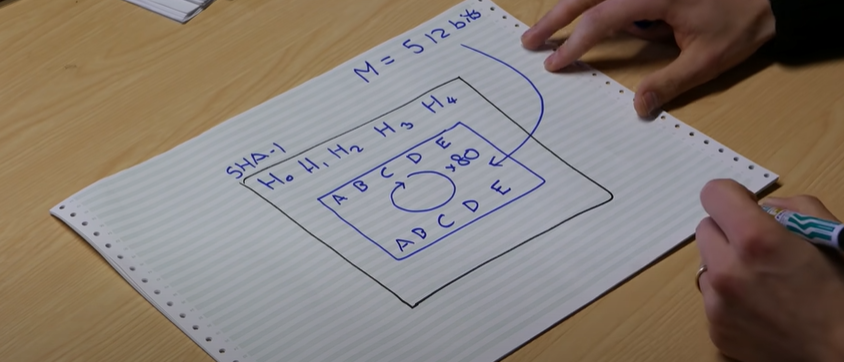 M = 512 bits
SHA-1
H₀ H₁ H₂ H₃ H₄
A B C D E
x80
A B C D E